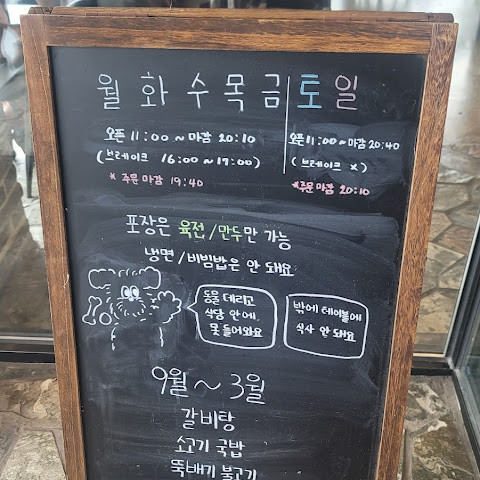 월 화 수 목 금 토 일
오픈 11:00 ~ 마감 20:10
(브레이크 16:00 ~ 17:00)
* 주문 마감 19:40
오픈 11:00 ~ 마감 20:40
(브레이크 X)
* 주문 마감 20:10
포장은 육전/만두만 가능
냉면/비빔밥은 안 돼요
동물 데리고
식당 안에
못 들어와요
밖에 테이블에
식사 안 돼요
9월 ~ 3월
갈비탕
소고기 국밥
뚝배기 불고기